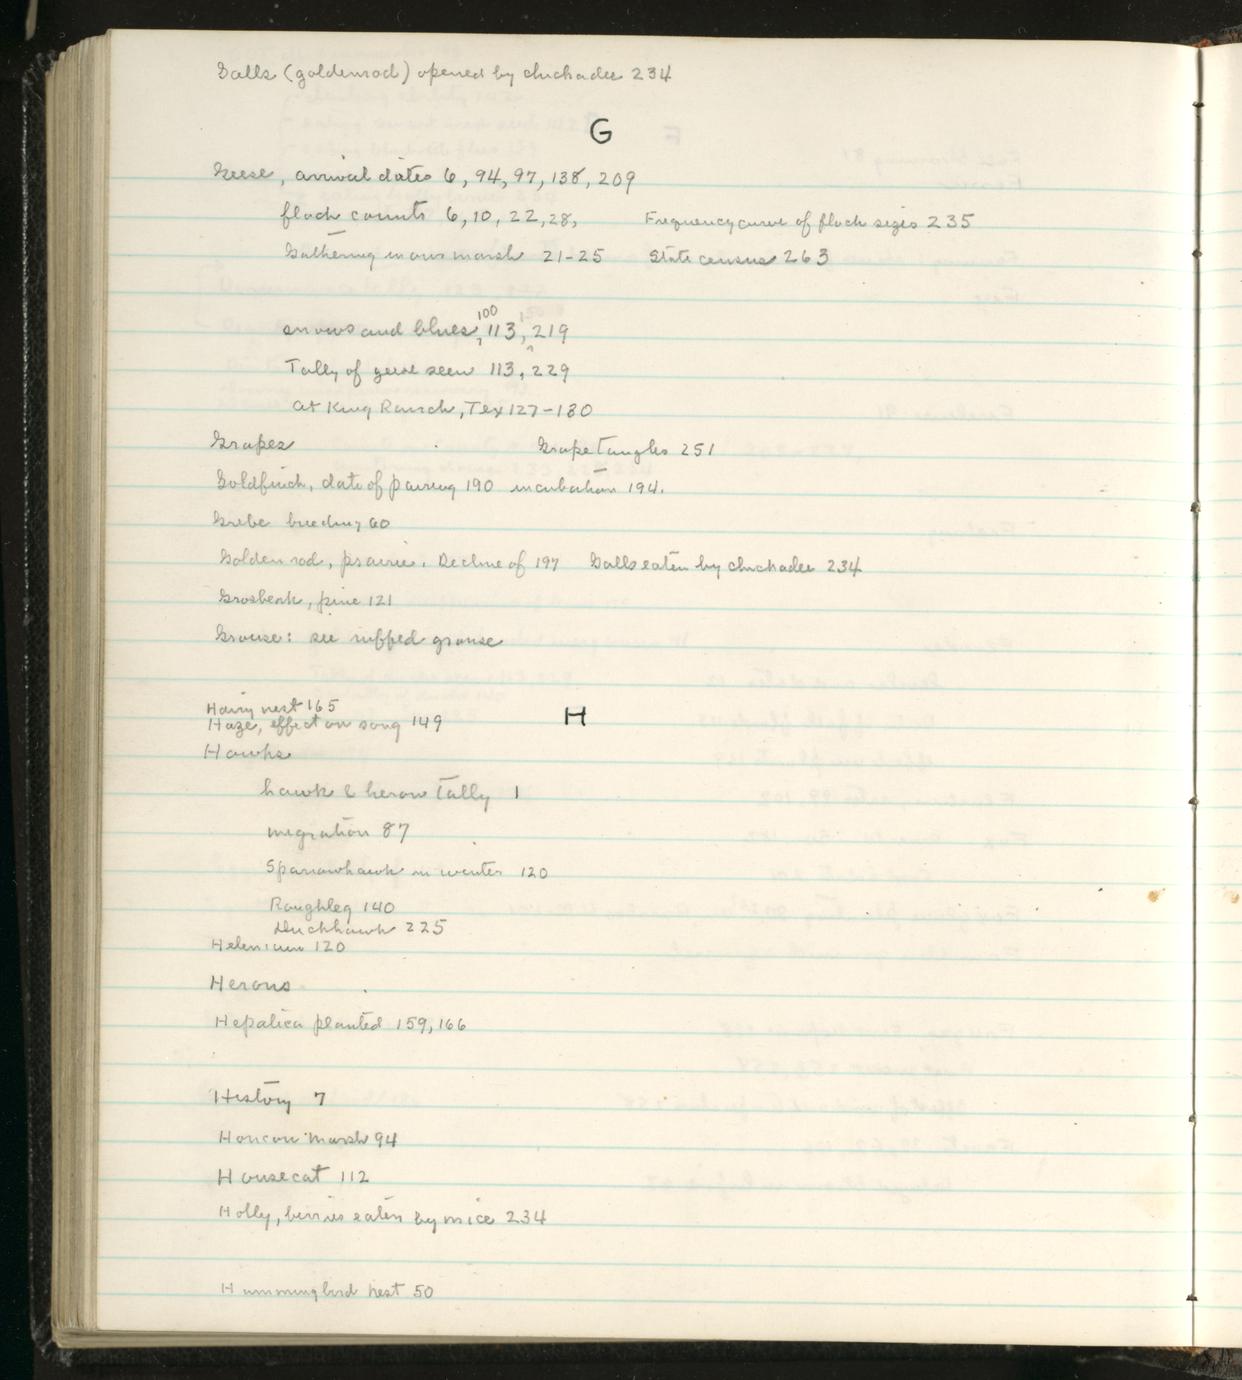 Galls (goldenrod) opened by chickadee 234
G
Geese, arrival dates 6, 94, 97, 138, 209
flock counts 6, 10, 22, 28, Frequency curve of flock sizes 235
Gathering in our marsh 21-25 State census 263
snows and blues, 100, 113, 219
Tally of geese seen 113, 229
at King Ranch, Tex 127-130
Grapes Grape tangles 251
Goldfinch, date of pairing 190 incubation 194.
Grebe breeding 60
Goldenrod, prairie. Decline of 197 Galls eaten by chickadee 234
Grosbeak, pine 121
Grouse: see ruffed grouse
Hairy nest 165
H
Haze, effect on song 149
Hawks
hawk & heron Tally 1
migration 87
Sparrowhawk in winter 120
Roughleg 140
Duckhawk 225
Helenium 120
Herons
Hepatica planted 159, 166
History 7
Horicon Marsh 94
Housecat 112
Holly, berries eaten by mice 234
Hummingbird nest 50